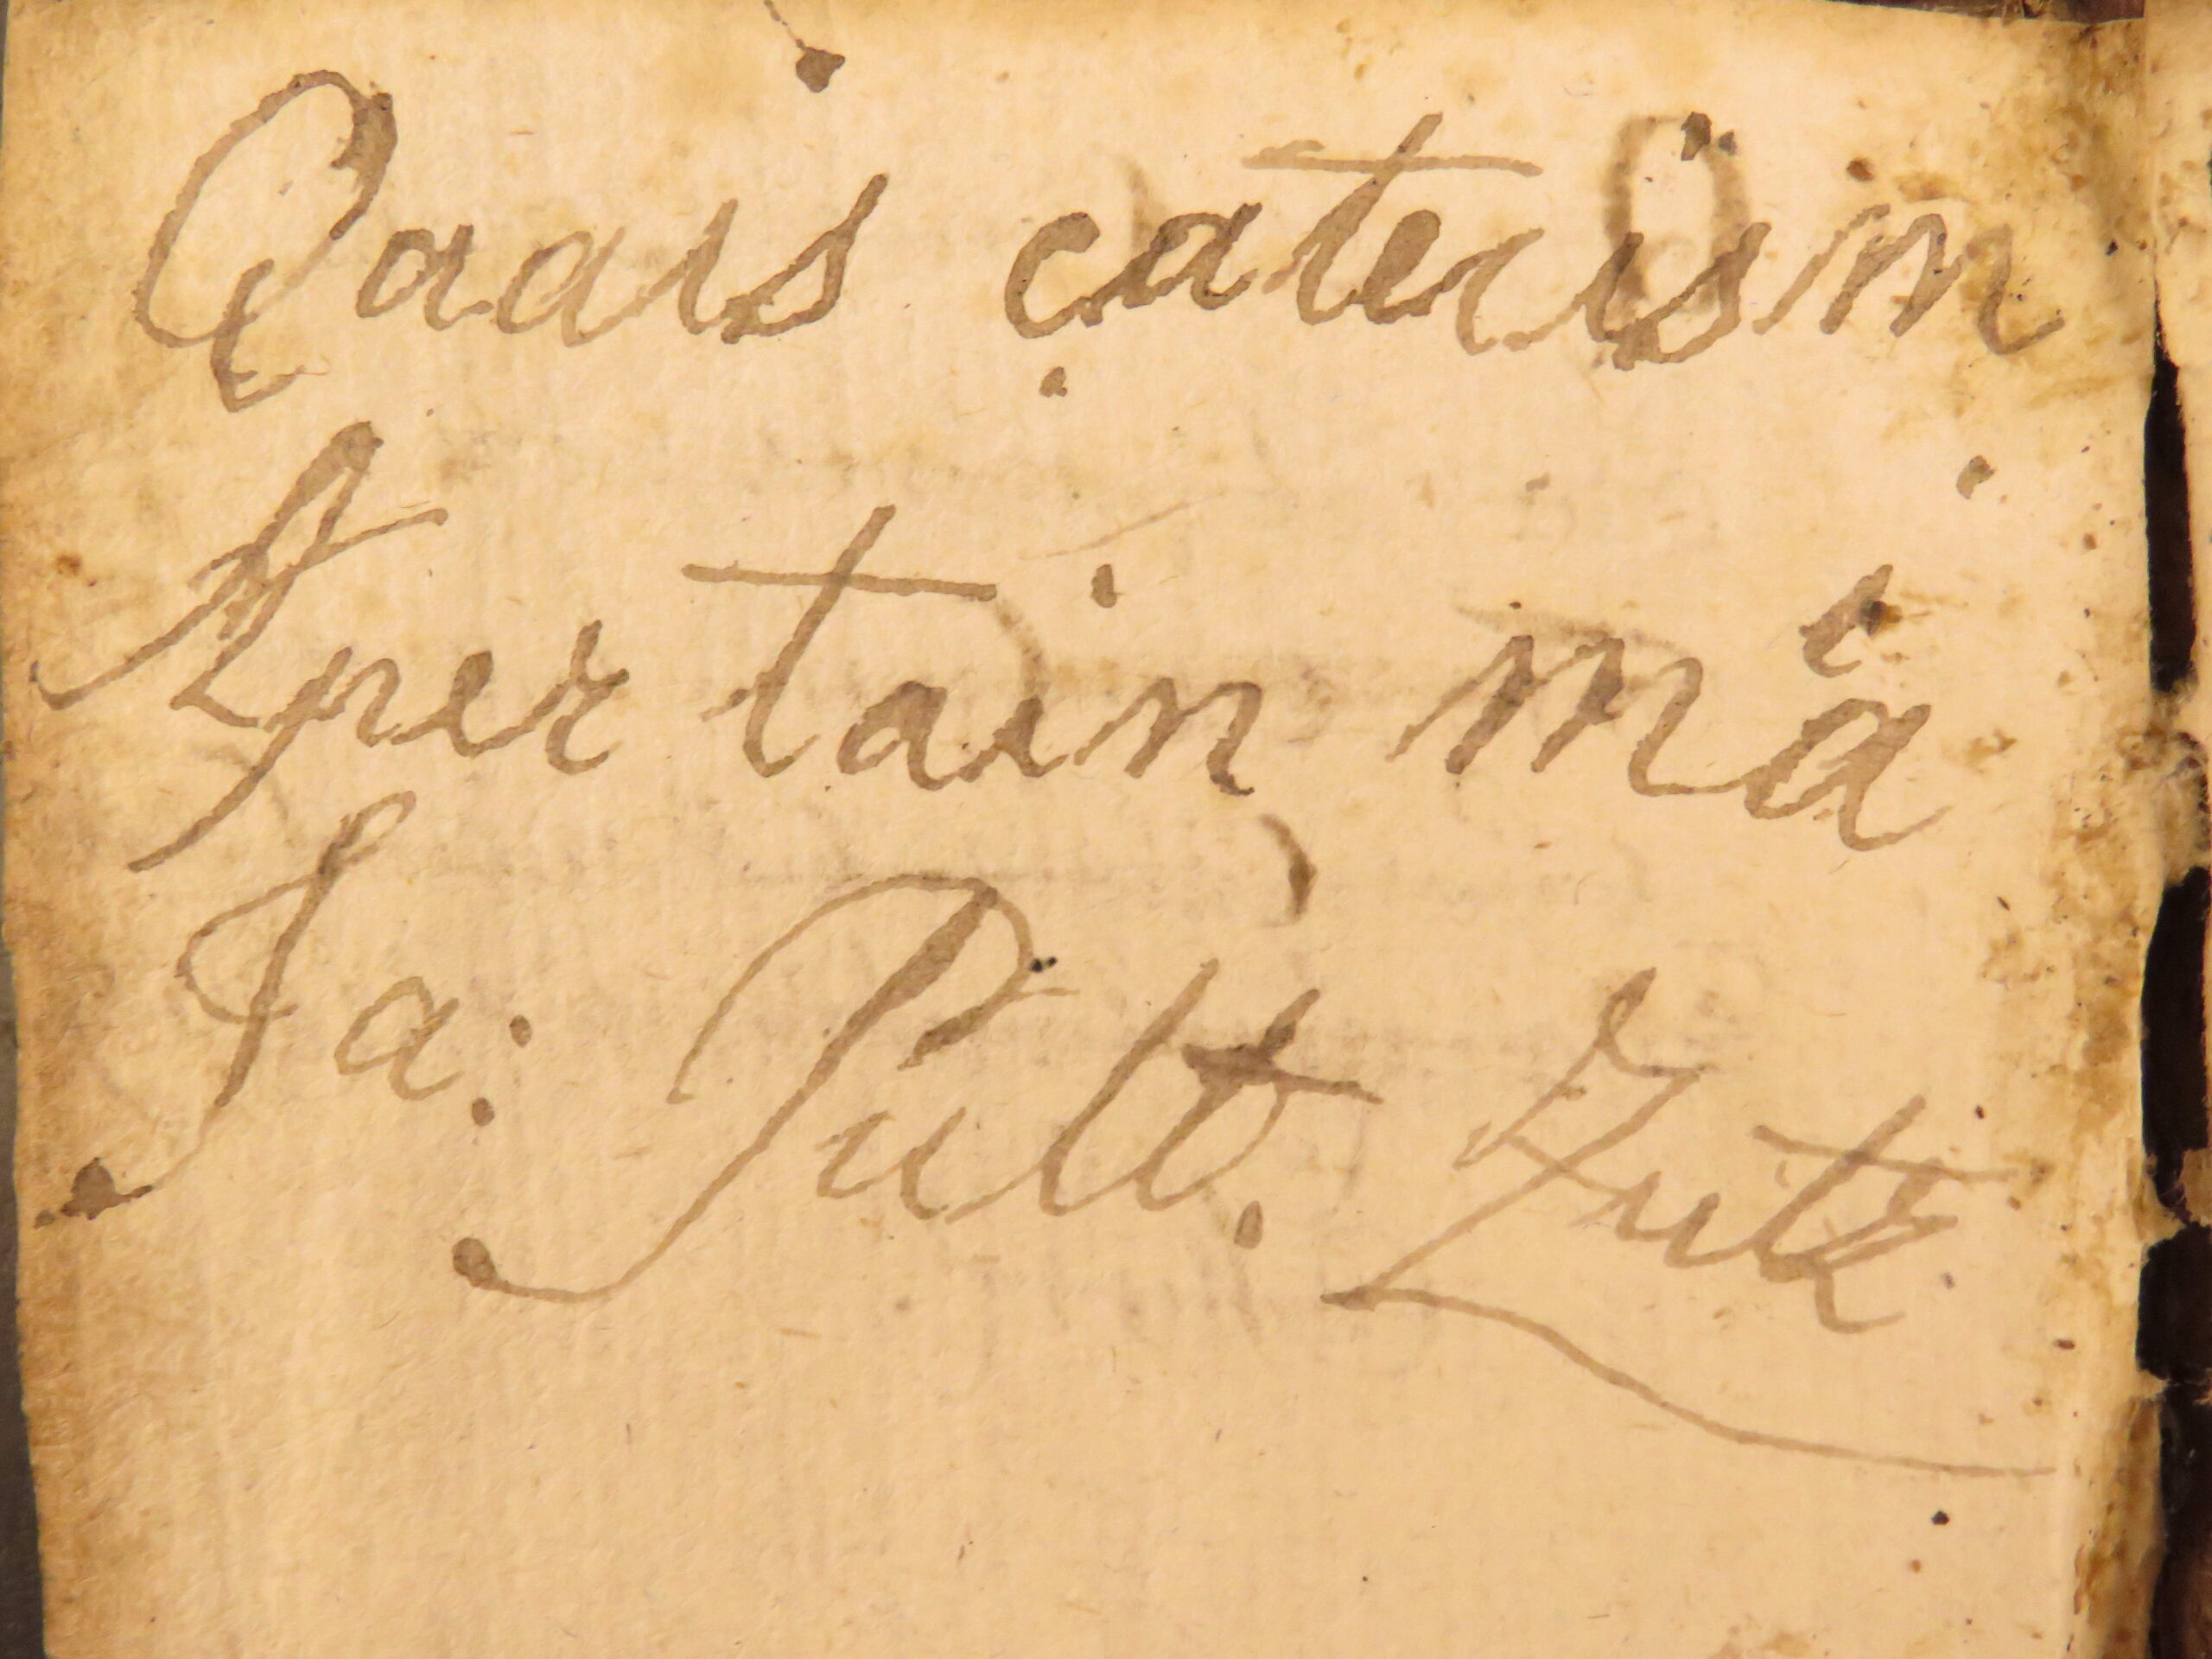 Qaais catecism
Apertain må
Ja: Pult. Zutt